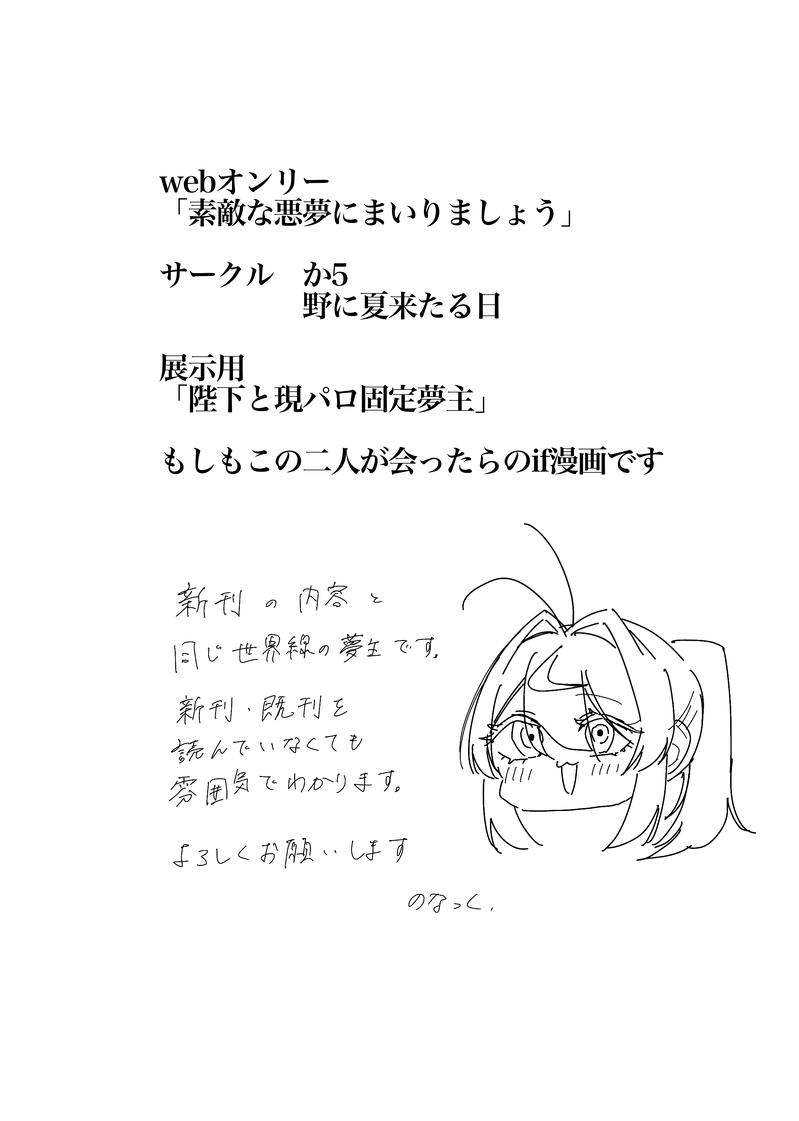 webオンリー
「素敵な悪夢にまいりましょう」
サークル　か5
野に夏来たる日
展示用
「陛下と現パロ固定夢主」
もしもこの二人が会ったらのif漫画です
新刊の内容と
同じ世界線の夢主です。
新刊・既刊を
読んでいなくても
雰囲気でわかります。
よろしくお願いします
のなっく.